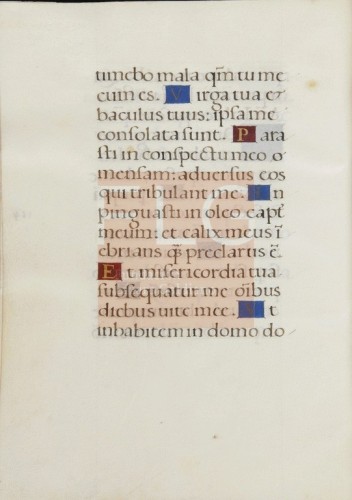 timebo mala qm̄ tu me
cum es. Virga tua et
baculus tuus: ipsa me
consolata sunt. Para
sti in conspectu meo
mensam: aduersus eos
qui tribulant me. In
pinguasti in oleo capt̄
meum: et calix meus ī
ebrians q̄ȝ preclarus ē.
Et misericordia tua
subsequatur me oībus
diebus uite mee. Et
inhabitem in domo do